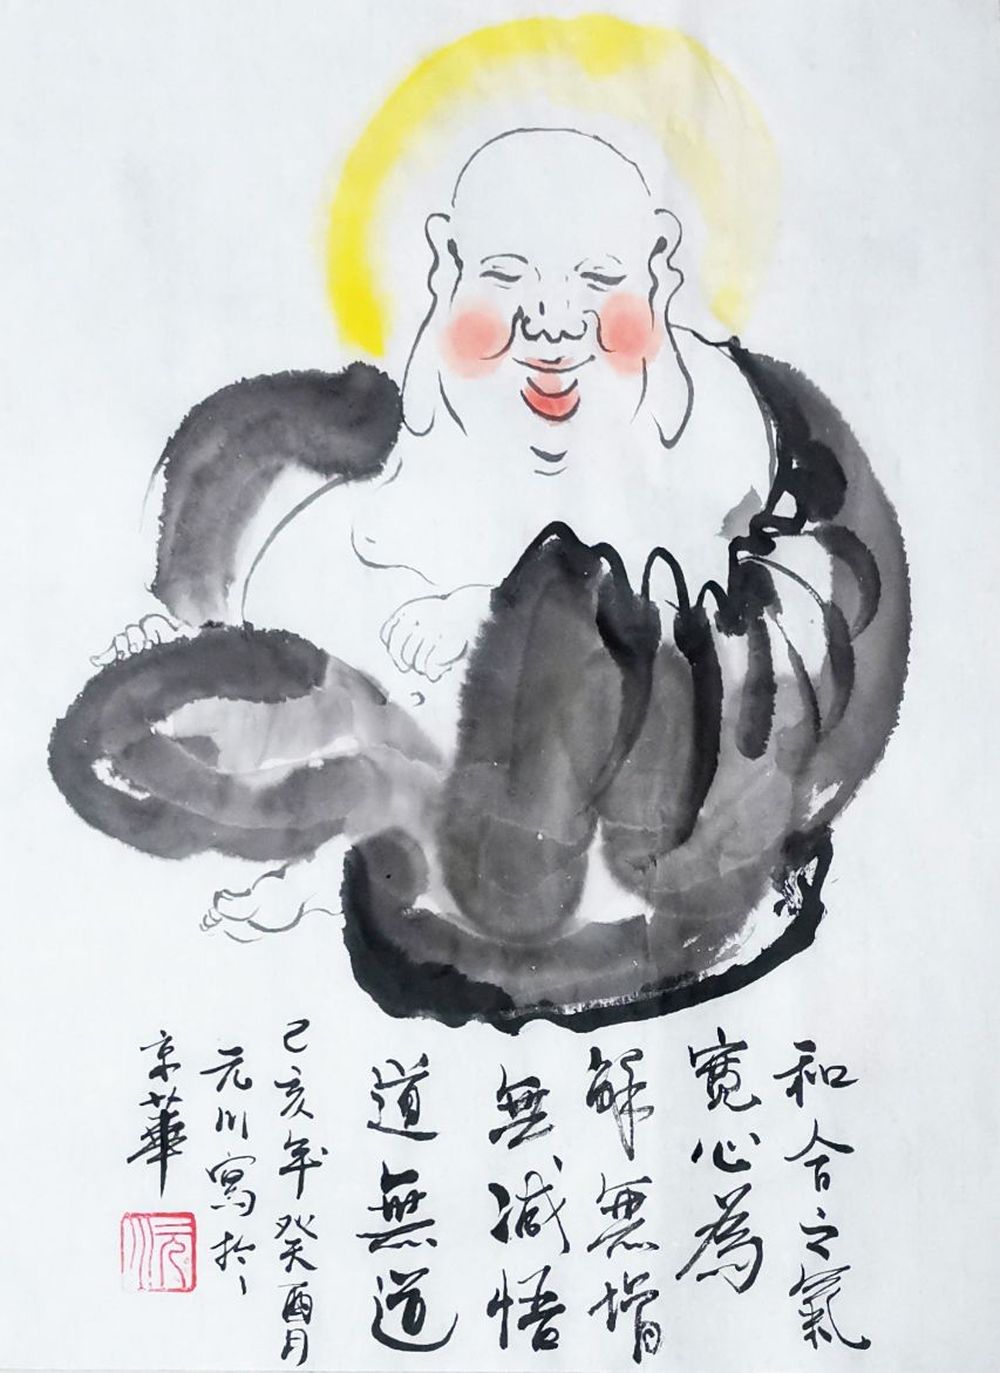 和合之氣
寬心為
解無增
無減悟
道無道
己亥年癸酉月
元川寫於
京華
元川